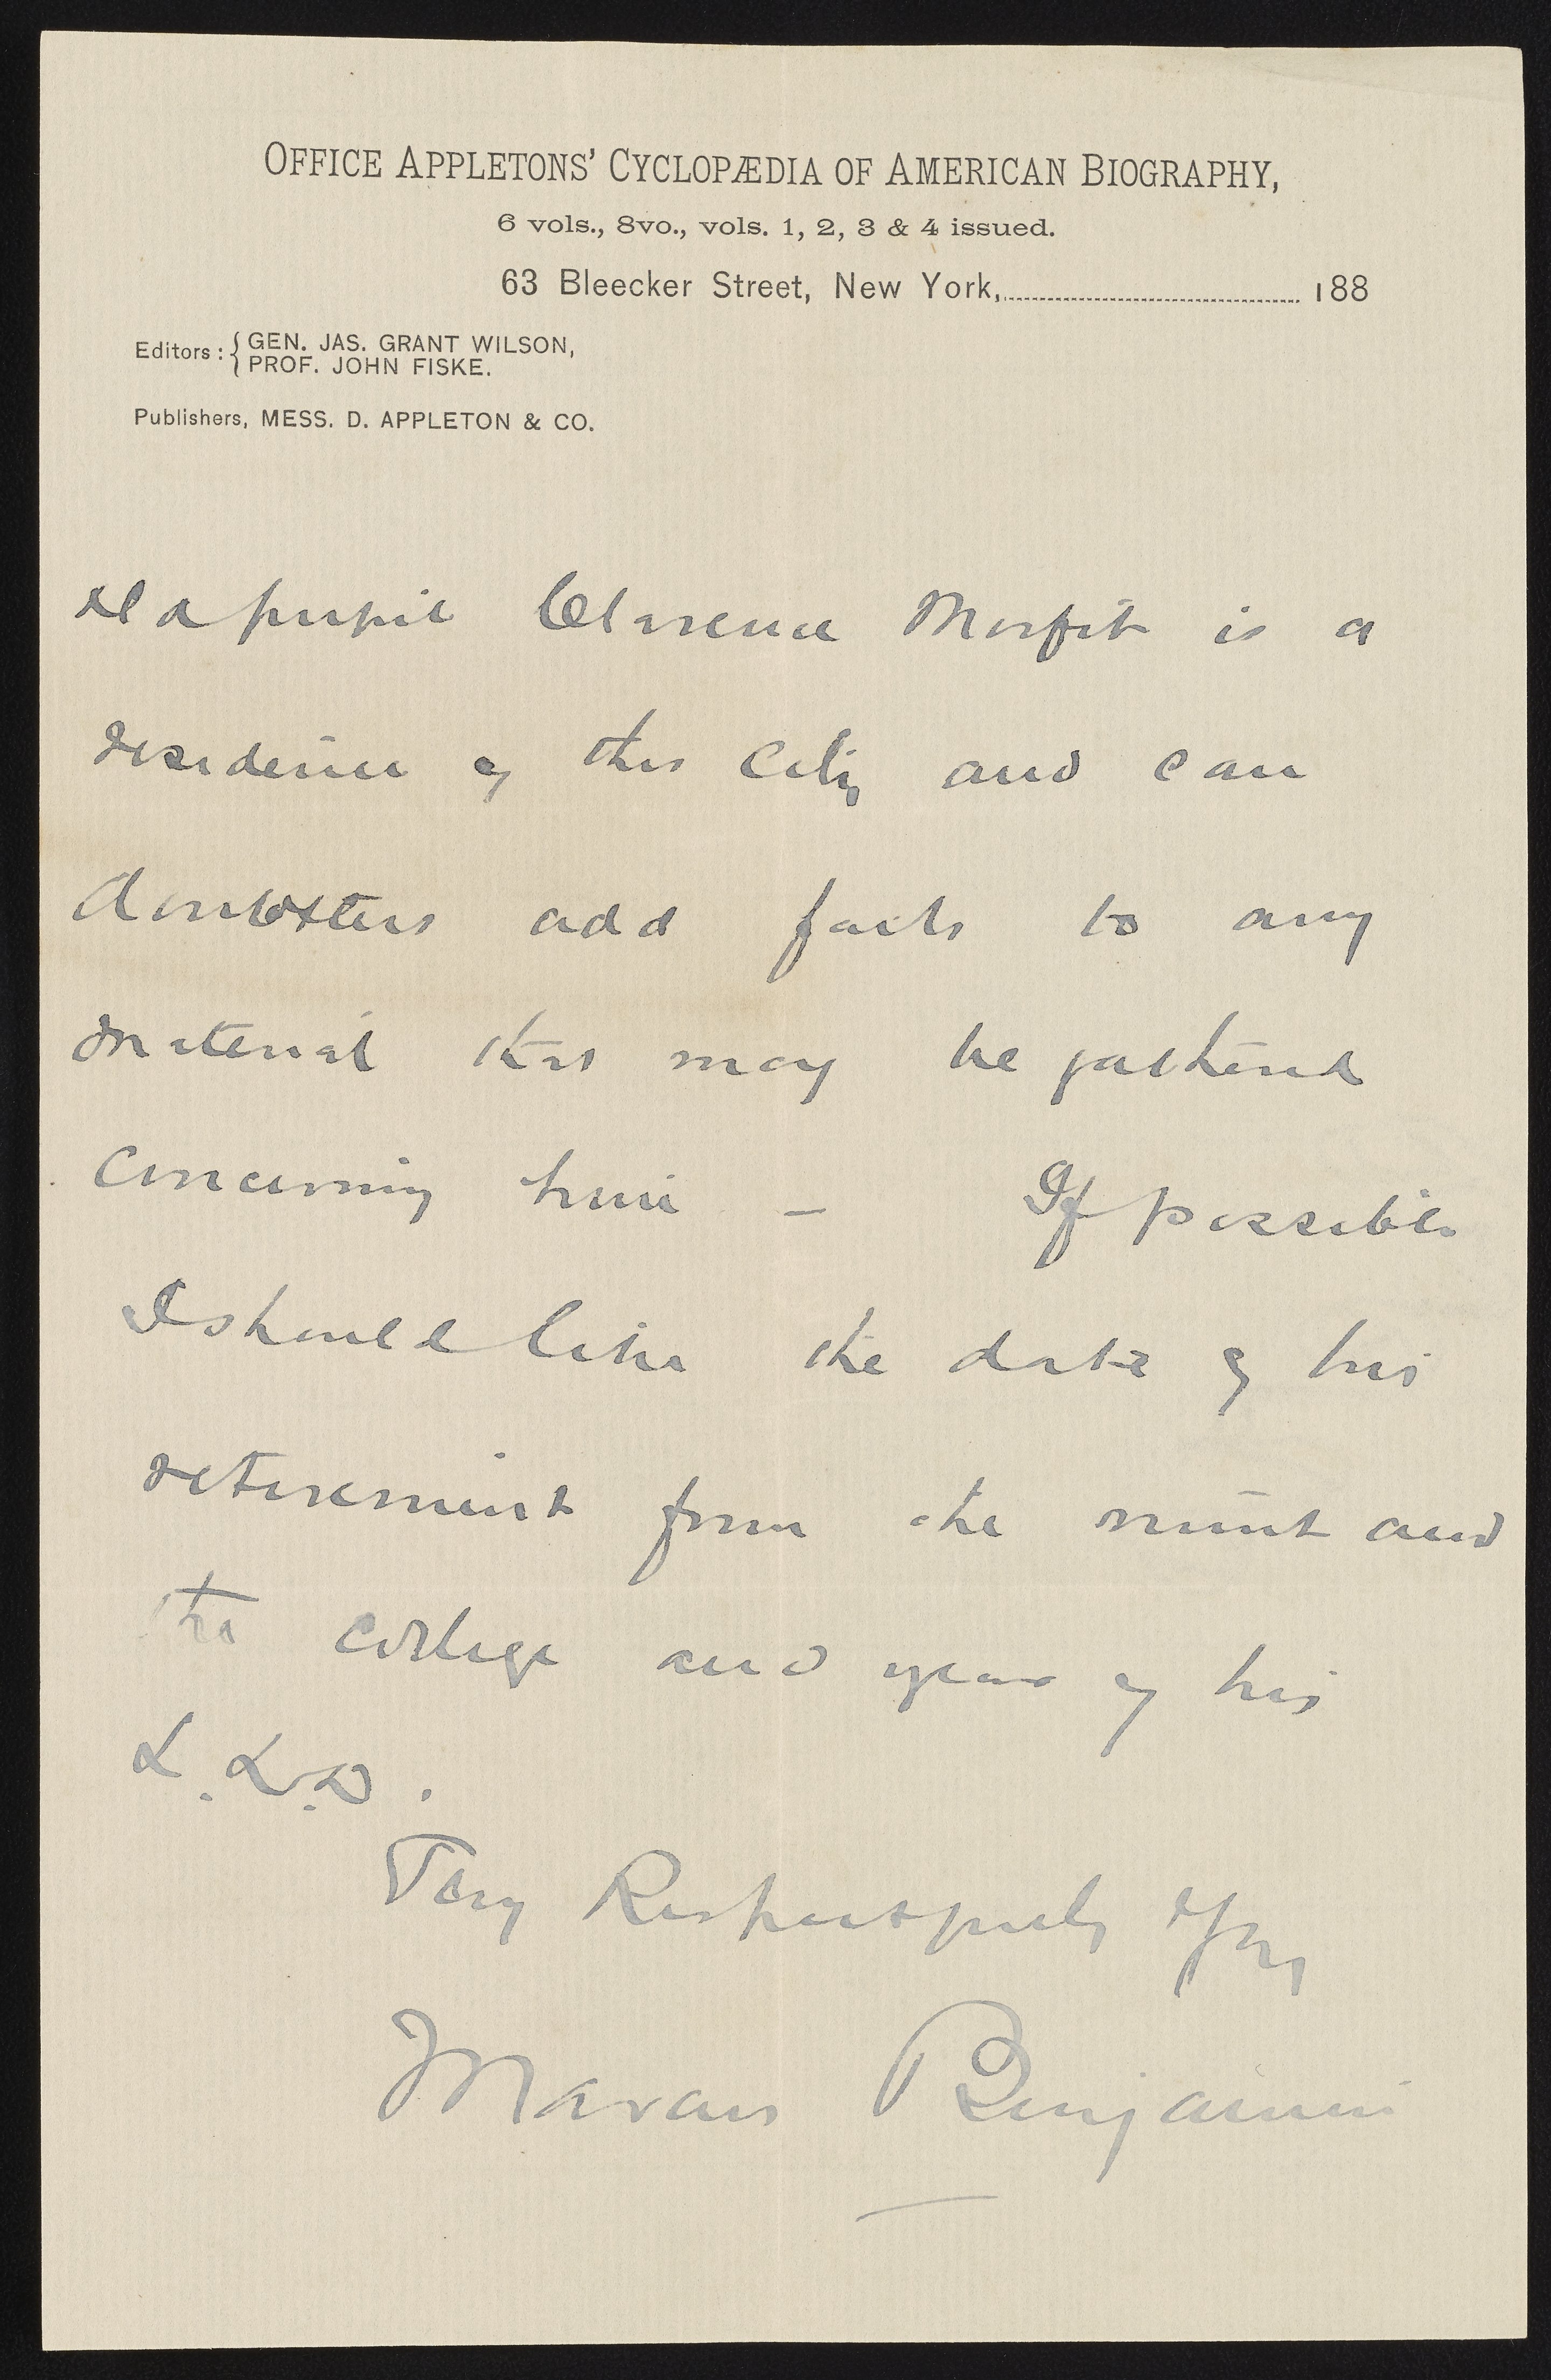 OFFICE APPLETONS' CYCLOPÆDIA OF AMERICAN BIOGRAPHY,
6 vols., 8vo., vols. 1, 2, 3 & 4 issued.
63 Bleecker Street, New York, 188
Editors: { GEN. JAS. GRANT WILSON,
PROF. JOHN FISKE.
Publishers, MESS. D. APPLETON & CO.
a pupil Clarence Morfit is a
of this City and can
doubtless add facts to any
material that may be gathered
concerning him – If possible
I should like the date of his
retirement from the mint and
the college and year of his
L.L.D.
Very Respectfully Yrs
Marcus Benjamin